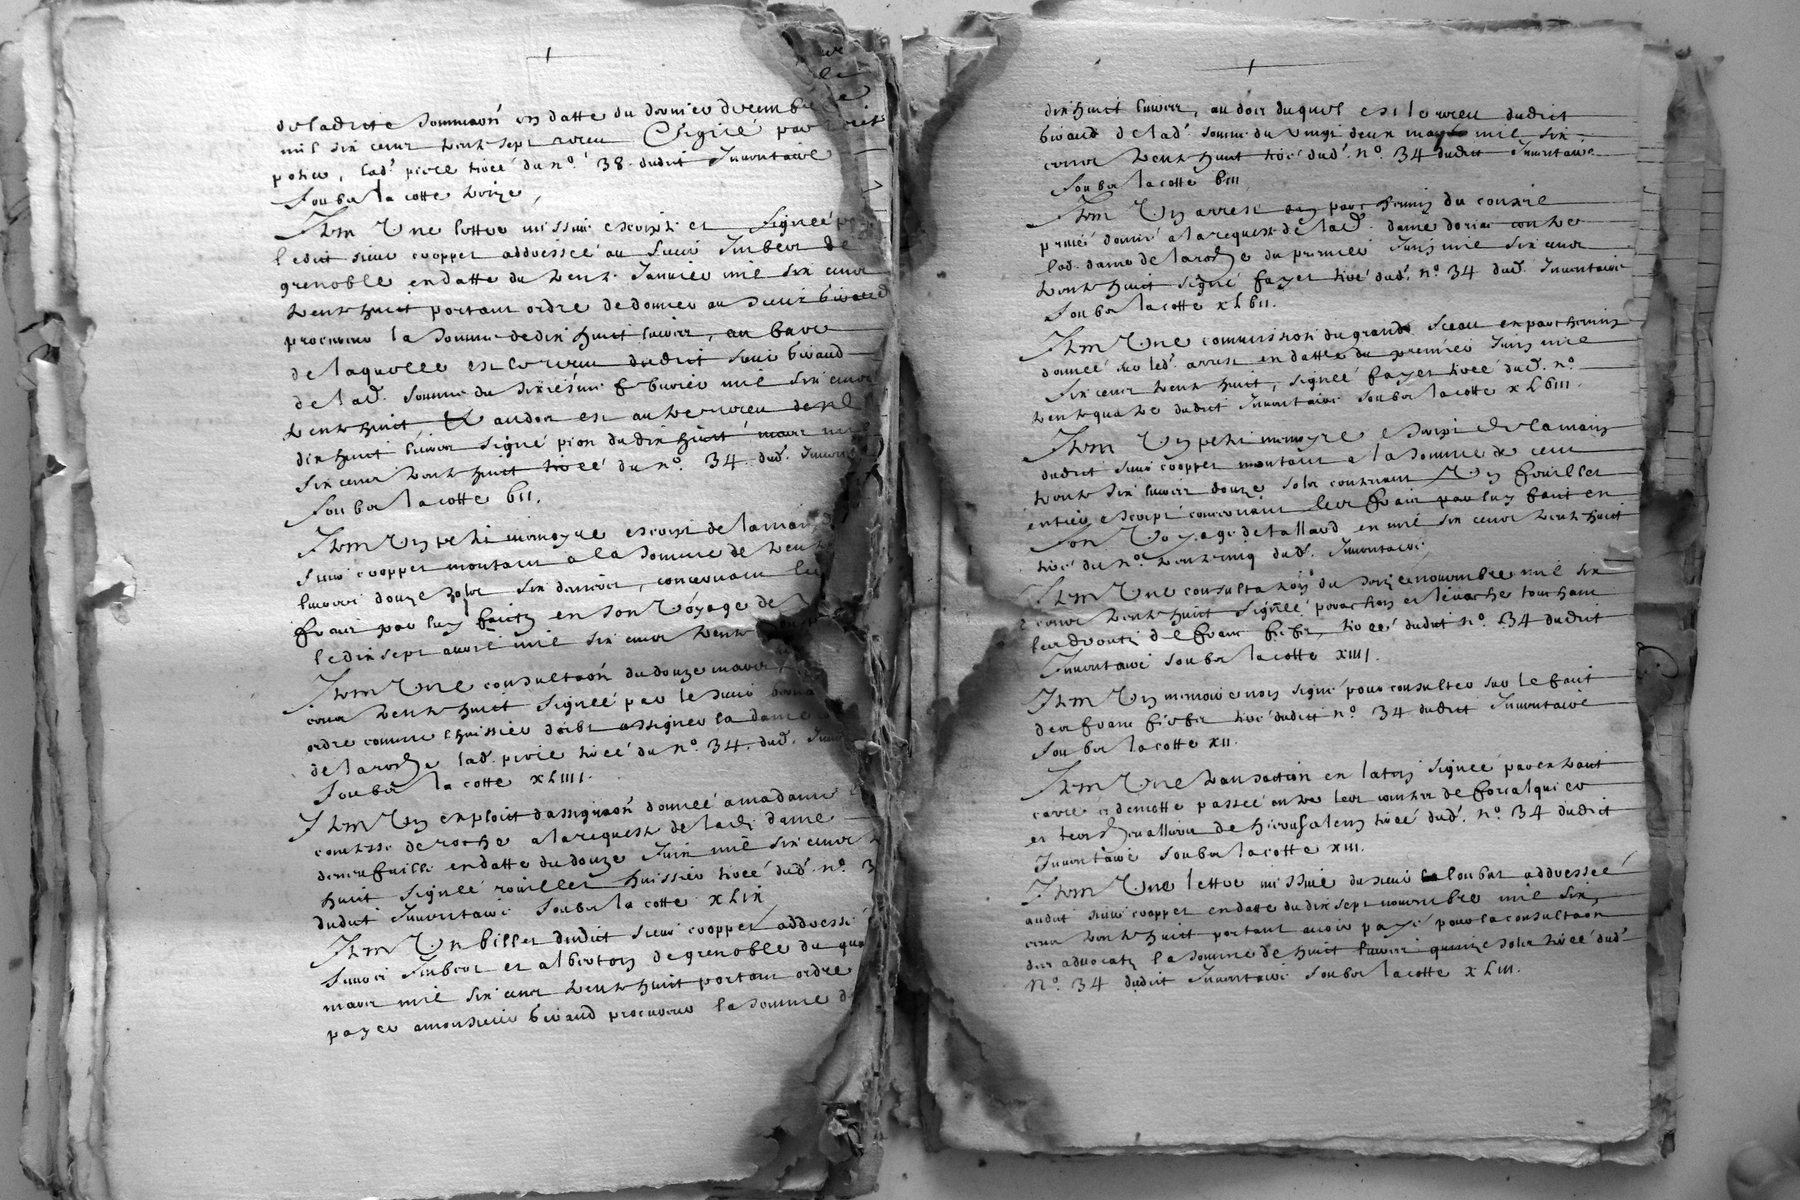 de ladicte sommaon en datte du dernier decembre
mil six cens trente sept receu Signé par
potier, lad. piece tirée du n.o 38. dudict Inventaire
soubz la cotte treize,
Item Une lettre missive escripte et signeé p
ledict sieur coopper addresseé au sieur Imbert de
grenoble en datte du trente Janvier mil six cens
trente huict portant ordre de donner au sieur bivaud
procureur la somme de dix huict livres, au bas
de laquelle est le receu dudict sieur bivaud
de lad. somme du sixiesme febvrier mil six cens
trente huict Et au dos est autre receu de
dix huict livres signé pion du dix huict mars
six cens trente huict tireé du n.o 34. dud. Inventa
soubz la cotte bII.
Item Un petit memoyre escript de la main
sieur coopper montant a la somme de trente
livres douze solz six deniers, concernant les
fraix par luy faictz en son Voyage de
le dix sept avril mil six cens trente
Item Une consultaon du douze mars
cens trente huict signeé par le sieur
ordre comme l'huissier doibt assigner la dame
de la roche lad. piece tireé du n.o 34. dud. Inven
soubz la cotte xLIIII.
Item Un exploict dassignaon donneé a madame
comtesse de roche a la requeste de lad. dame
de neufville en datte du douze Juin mil six cens
huict signeé rouillet huissier tireé dud. n.o 3
dudict Inventaire soubz la cotte xLIX
Item Un billet dudict sieur coopper addressé
sieurs Imbert et alberton de grenoble du qua
mars mil six cens trente huict portant ordre
payer a monsieur bivaud procureur la somme d
dix huict livres, au dos duquel est le receu dudict
bivaud de lad. somme du vingt deux may mil six
cens trente huict tireé dud. n.o 34 dudict Inventaire
soubz la cotte bIII
Item Un arrest en parchemin du conseil
privé donné a la requeste de lad. dame contre
lad. dame de la roche du premier Juin mil six cens
trente huict signé fayet tiré dud. n.o 34 dud. Inventaire
soubz la cotte xLbII.
Item Une commission du grand sceau en parchemin
donneé sur led. arrest en datte du premier Juin mil
six cens trente huict, signeé fayet tireé dud. n.o
trente quatre dudict Inventaire soubz la cotte xLbIII.
Item Un petit memoyre escript de la main
dudict sieur coopper montant a la somme de cent
trente six livres douze solz contenant Un fueillet
entier escript concernant les fraix par luy faict en
son Voyage de tallard en mil six cens trente huict
tiré du n.o trente cinq dud. Inventaire,
Item Une consultation du seize novembre mil six
cens trente huict signeé et touchant
les droictz de franc fief, tireé dudict n.o 34 dudict
Inventaire soubz la cotte xIIII.
Item Un memoire non signé pour consulter sur le faict
des franc fiefz tiré dudict n.o 34 dudict Inventaire
soubz la cotte xII.
Item Une transaction en latin signeé
et demotte passeé entre les comtes de forcalquier
et les chevalliers de hierusalem tireé dud. n.o 34 dudict
Inventaire soubz la cotte xIII.
Item Une lettre missive du sieur loubat addresseé
audict sieur coopper en datte du dix sept novembre mil six
cens trente huict portant avoir payé pour la consultaon
des advocatz la somme de huict livres quinze solz tireé dud.
N.o 34 dudict Inventaire soubz la cotte xLIII.